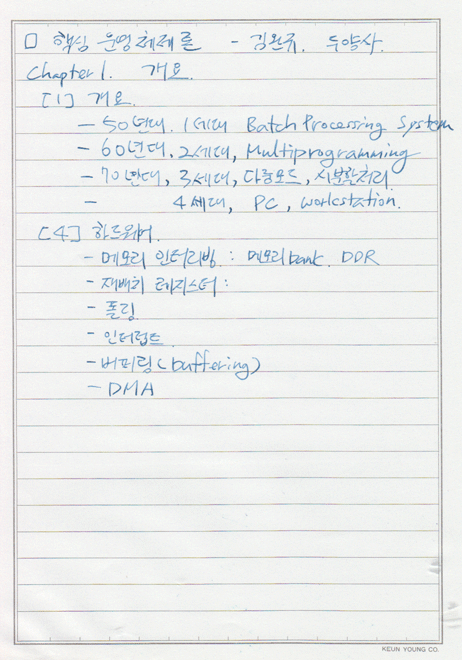 □ 핵심 운영체제론 - 김완규. 두양사.
Chapter 1. 개요.
[1] 개요.
- 50년대. 1세대 Batch Processing System
- 60년대, 2세대, Multiprogramming
- 70년대, 3세대, 다중모드, 시분할처리.
- 4세대, PC, workstation.
[4] 하드웨어.
- 메모리 인터리빙 : 메모리 bank. DDR
- 재배치 레지스터 :
- 폴링
- 인터럽트
- 버퍼링(buffering)
- DMA
KEUN YOUNG CO.